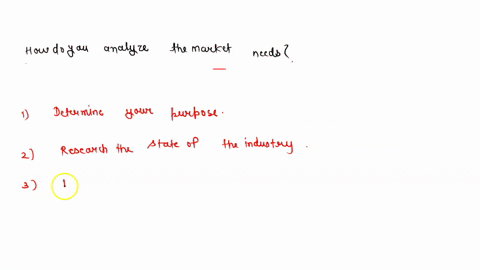 How do you analyze the market needs?
1) Determine your purpose.
2) Research the state of the industry.
3) I